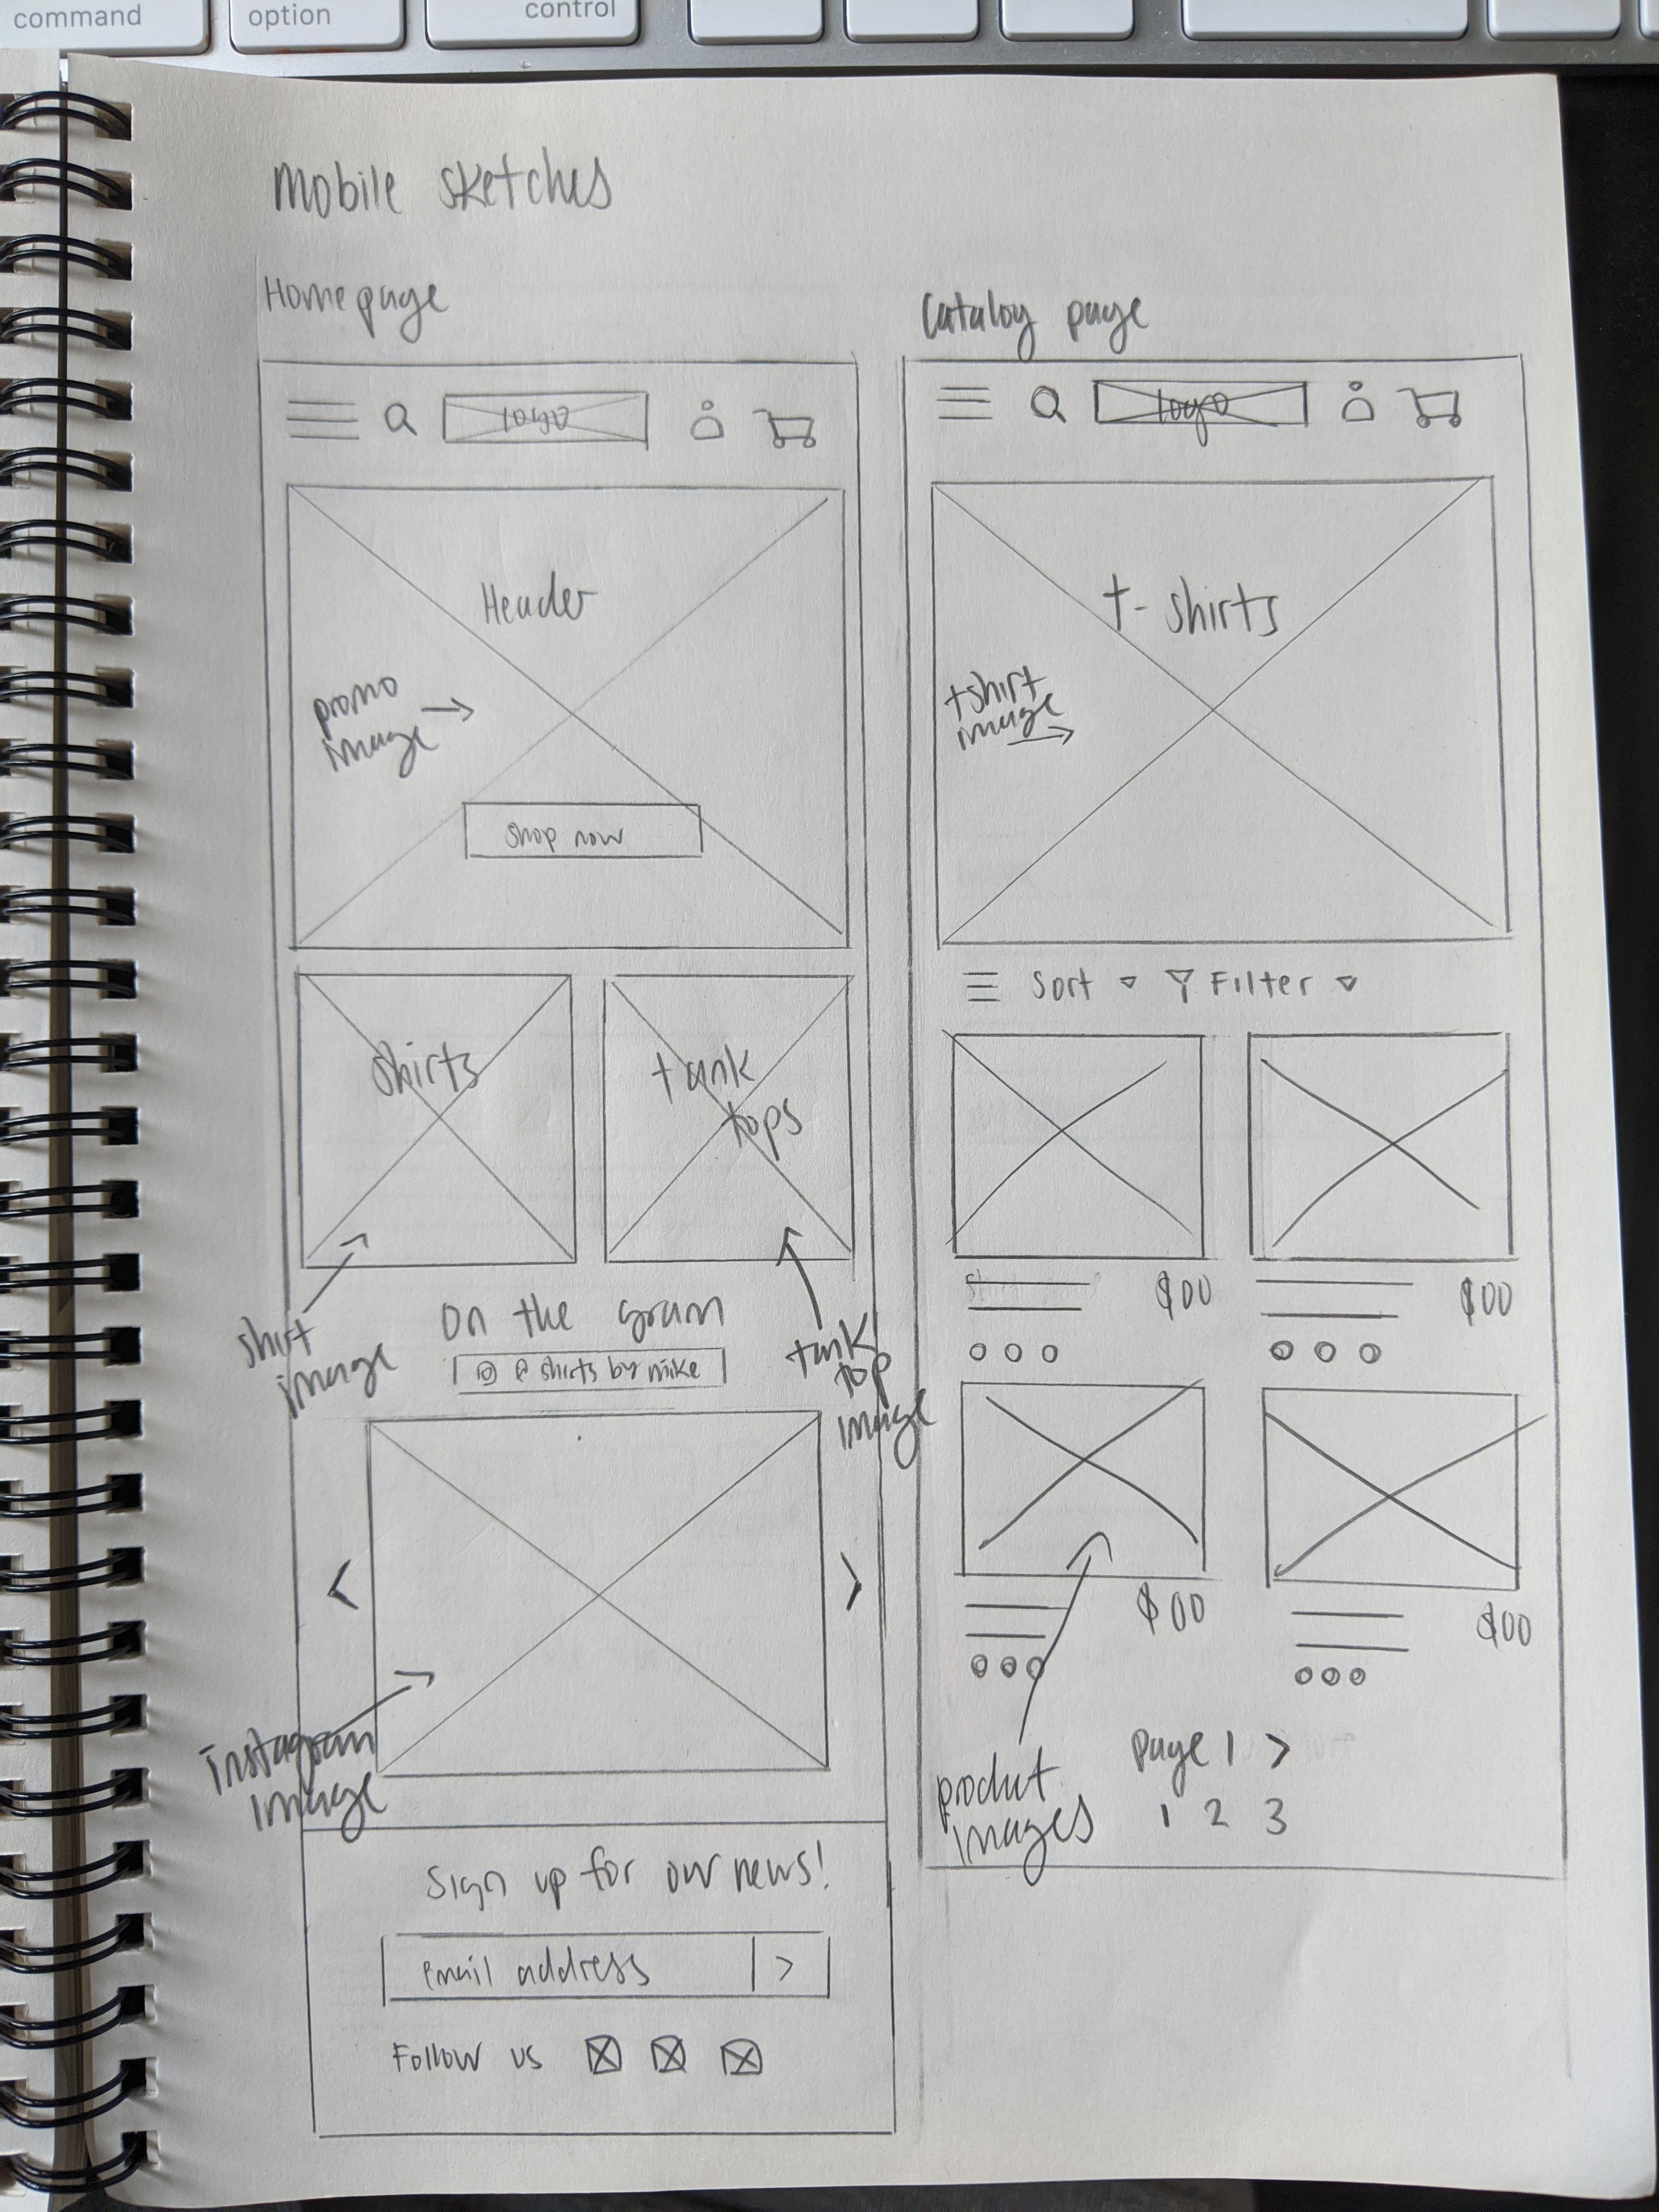 command
option
control
mobile sketches
Homepage
logo
Header
promo
image
shop now
shirts
tank
tops
shirt
image
tank
top
image
on the gram
@ shirts by mike
instagram
image
Sign up for our news!
email address
Follow us
Catalog page
logo
t-shirts
tshirt
image
Sort
Filter
$00
$00
$00
$00
product
images
page 1 >
1 2 3